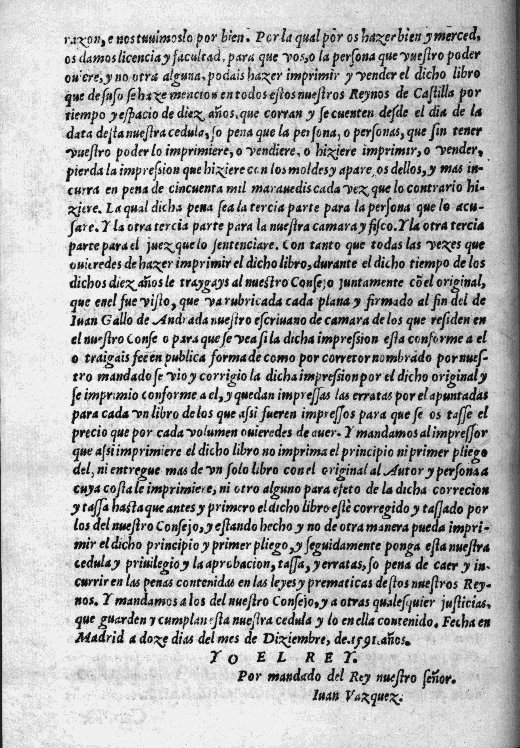 razon, e nos tuuimoslo por bien. Por la qual por os hazer bien y merced,
os damos licencia y facultad, para que vos, o la persona que vuestro poder
ouiere, y no otra alguna, podais hazer imprimir y vender el dicho libro
que de suso se haze mencion en todos estos nuestros Reynos de Castilla por
tiempo y espacio de diez años, que corran y se cuenten desde el dia de la
data desta nuestra cedula, so pena que la persona, o personas, que sin tener
vuestro poder lo imprimiere, o vendiere, o hiziere imprimir, o vender,
pierda la impression que hiziere con los moldes y apare os dellos, y mas in-
curra en pena de cincuenta mil marauedis cada vez que lo contrario hi-
ziere. La qual dicha pena sea la tercia parte para la persona que lo acu-
sare. Y la otra tercia parte para la nuestra camara y fisco. Y la otra tercia
parte para el juez que lo sentenciare. Con tanto que todas las vezes que
ouieredes de hazer imprimir el dicho libro, durante el dicho tiempo de los
dichos diez años le traygays al nuestro Consejo juntamente cõ el original,
que en el fue visto, que va rubricada cada plana y firmado al fin del de
Iuan Gallo de Andrada nuestro escriuano de camara de los que residen en
el nuestro Conse o para que se vea si la dicha impression esta conforme a el
o traigais fee en publica forma de como por corretor nombrado por nues-
tro mandado se vio y corrigio la dicha impression por el dicho original y
se imprimio conforme a el, y quedan impressas las erratas por el apuntadas
para cada vn libro de los que assi fueren impressos para que se os tasse el
precio que por cada volumen ouieredes de auer. Y mandamos al impressor
que assi imprimiere el dicho libro no imprima el principio ni primer pliego
del, ni entregue mas de vn solo libro con el original al Autor y persona a
cuya costa le imprimiere, ni otro alguno para efeto de la dicha correcion
y tassa hasta que antes y primero el dicho libro estè corregido y tassado por
los del nuestro Consejo, y estando hecho y no de otra manera pueda impri-
mir el dicho principio y primer pliego, y seguidamente ponga esta nuestra
cedula y priuilegio y la aprobacion, tassa, y erratas, so pena de caer y in-
currir en las penas contenidas en las leyes y prematicas destos nuestros Rey-
nos. Y mandamos a los del nuestro Consejo, y a otras qualesquier justicias,
que guarden y cumplan esta nuestra cedula y lo en ella contenido. Fecha en
Madrid a doze dias del mes de Diziembre, de. 1591. años.
YO EL REY.
Por mandado del Rey nuestro señor.
Iuan Vazquez.